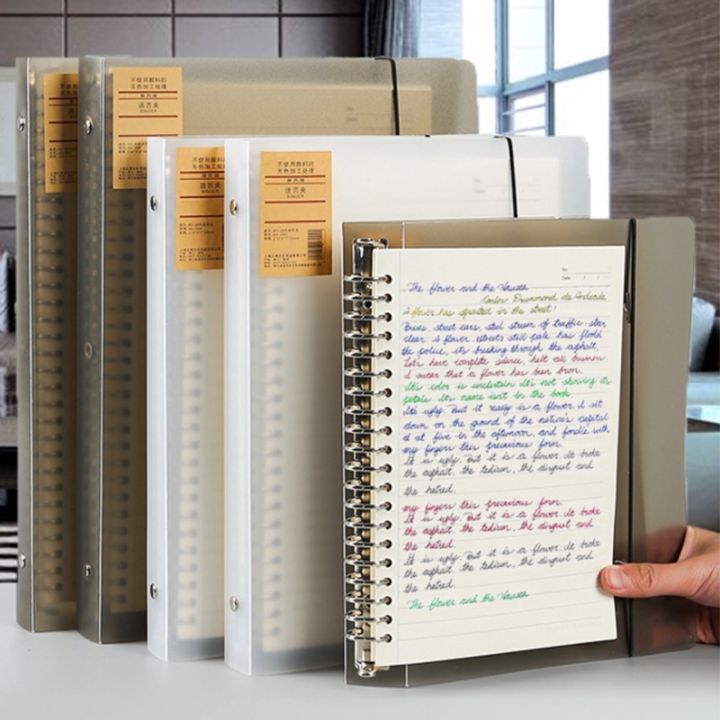 不使用颜料的
无色加工处理
聚丙烯
活页夹
BINDER
不使用颜料的
无色加工处理
聚丙烯
活页夹
BINDER
不使用颜料的
无色加工处理
聚丙烯
活页夹
BINDER
No.
Date
The flower and the Nausea
Carlos Drummond de Andrade
A flower has sprouted in the street!
Buses, street cars, steel stream of traffic: steer
clear! A flower, still pale, has
the police, it's breaking through the asphalt.
Let's have complete silence, halt all business
I swear that a flower has been born.
It's color is uncertain It's not showing its
petals. It's name isn't in the book.
It's ugly. But it really is a flower. I sit
down on the ground of the nation's capital
at five in the afternoon, and fondle with
my fingers this precarious form.
It is ugly. But it is a flower. It broke
the asphalt, the tedium, the disgust and
the hatred.
my fingers this precarious form.
It is ugly. But it is a flower. It broke
the asphalt, the tedium, the disgust and
the hatred.
It is ugly. But it is a flower. It broke
the asphalt, the tedium, the disgust and
the hatred.
The flower and the Nausea